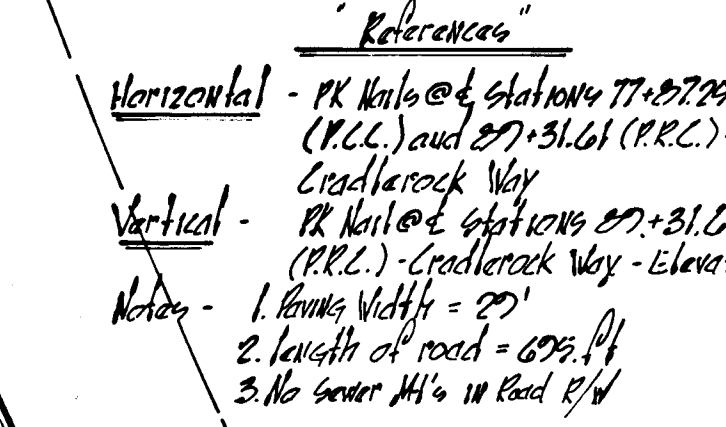 "References"
Horizontal - PK Nails @ ℄ Stations
(P.C.C.) and (P.R.C.) -
Cradlerock Way
Vertical - PK Nail @ ℄ Stations
(P.R.C.) - Cradlerock Way -
Notes - 1. Paving Width =
2. length of road = 695.ft
3. No Sewer MH's in Road R/W